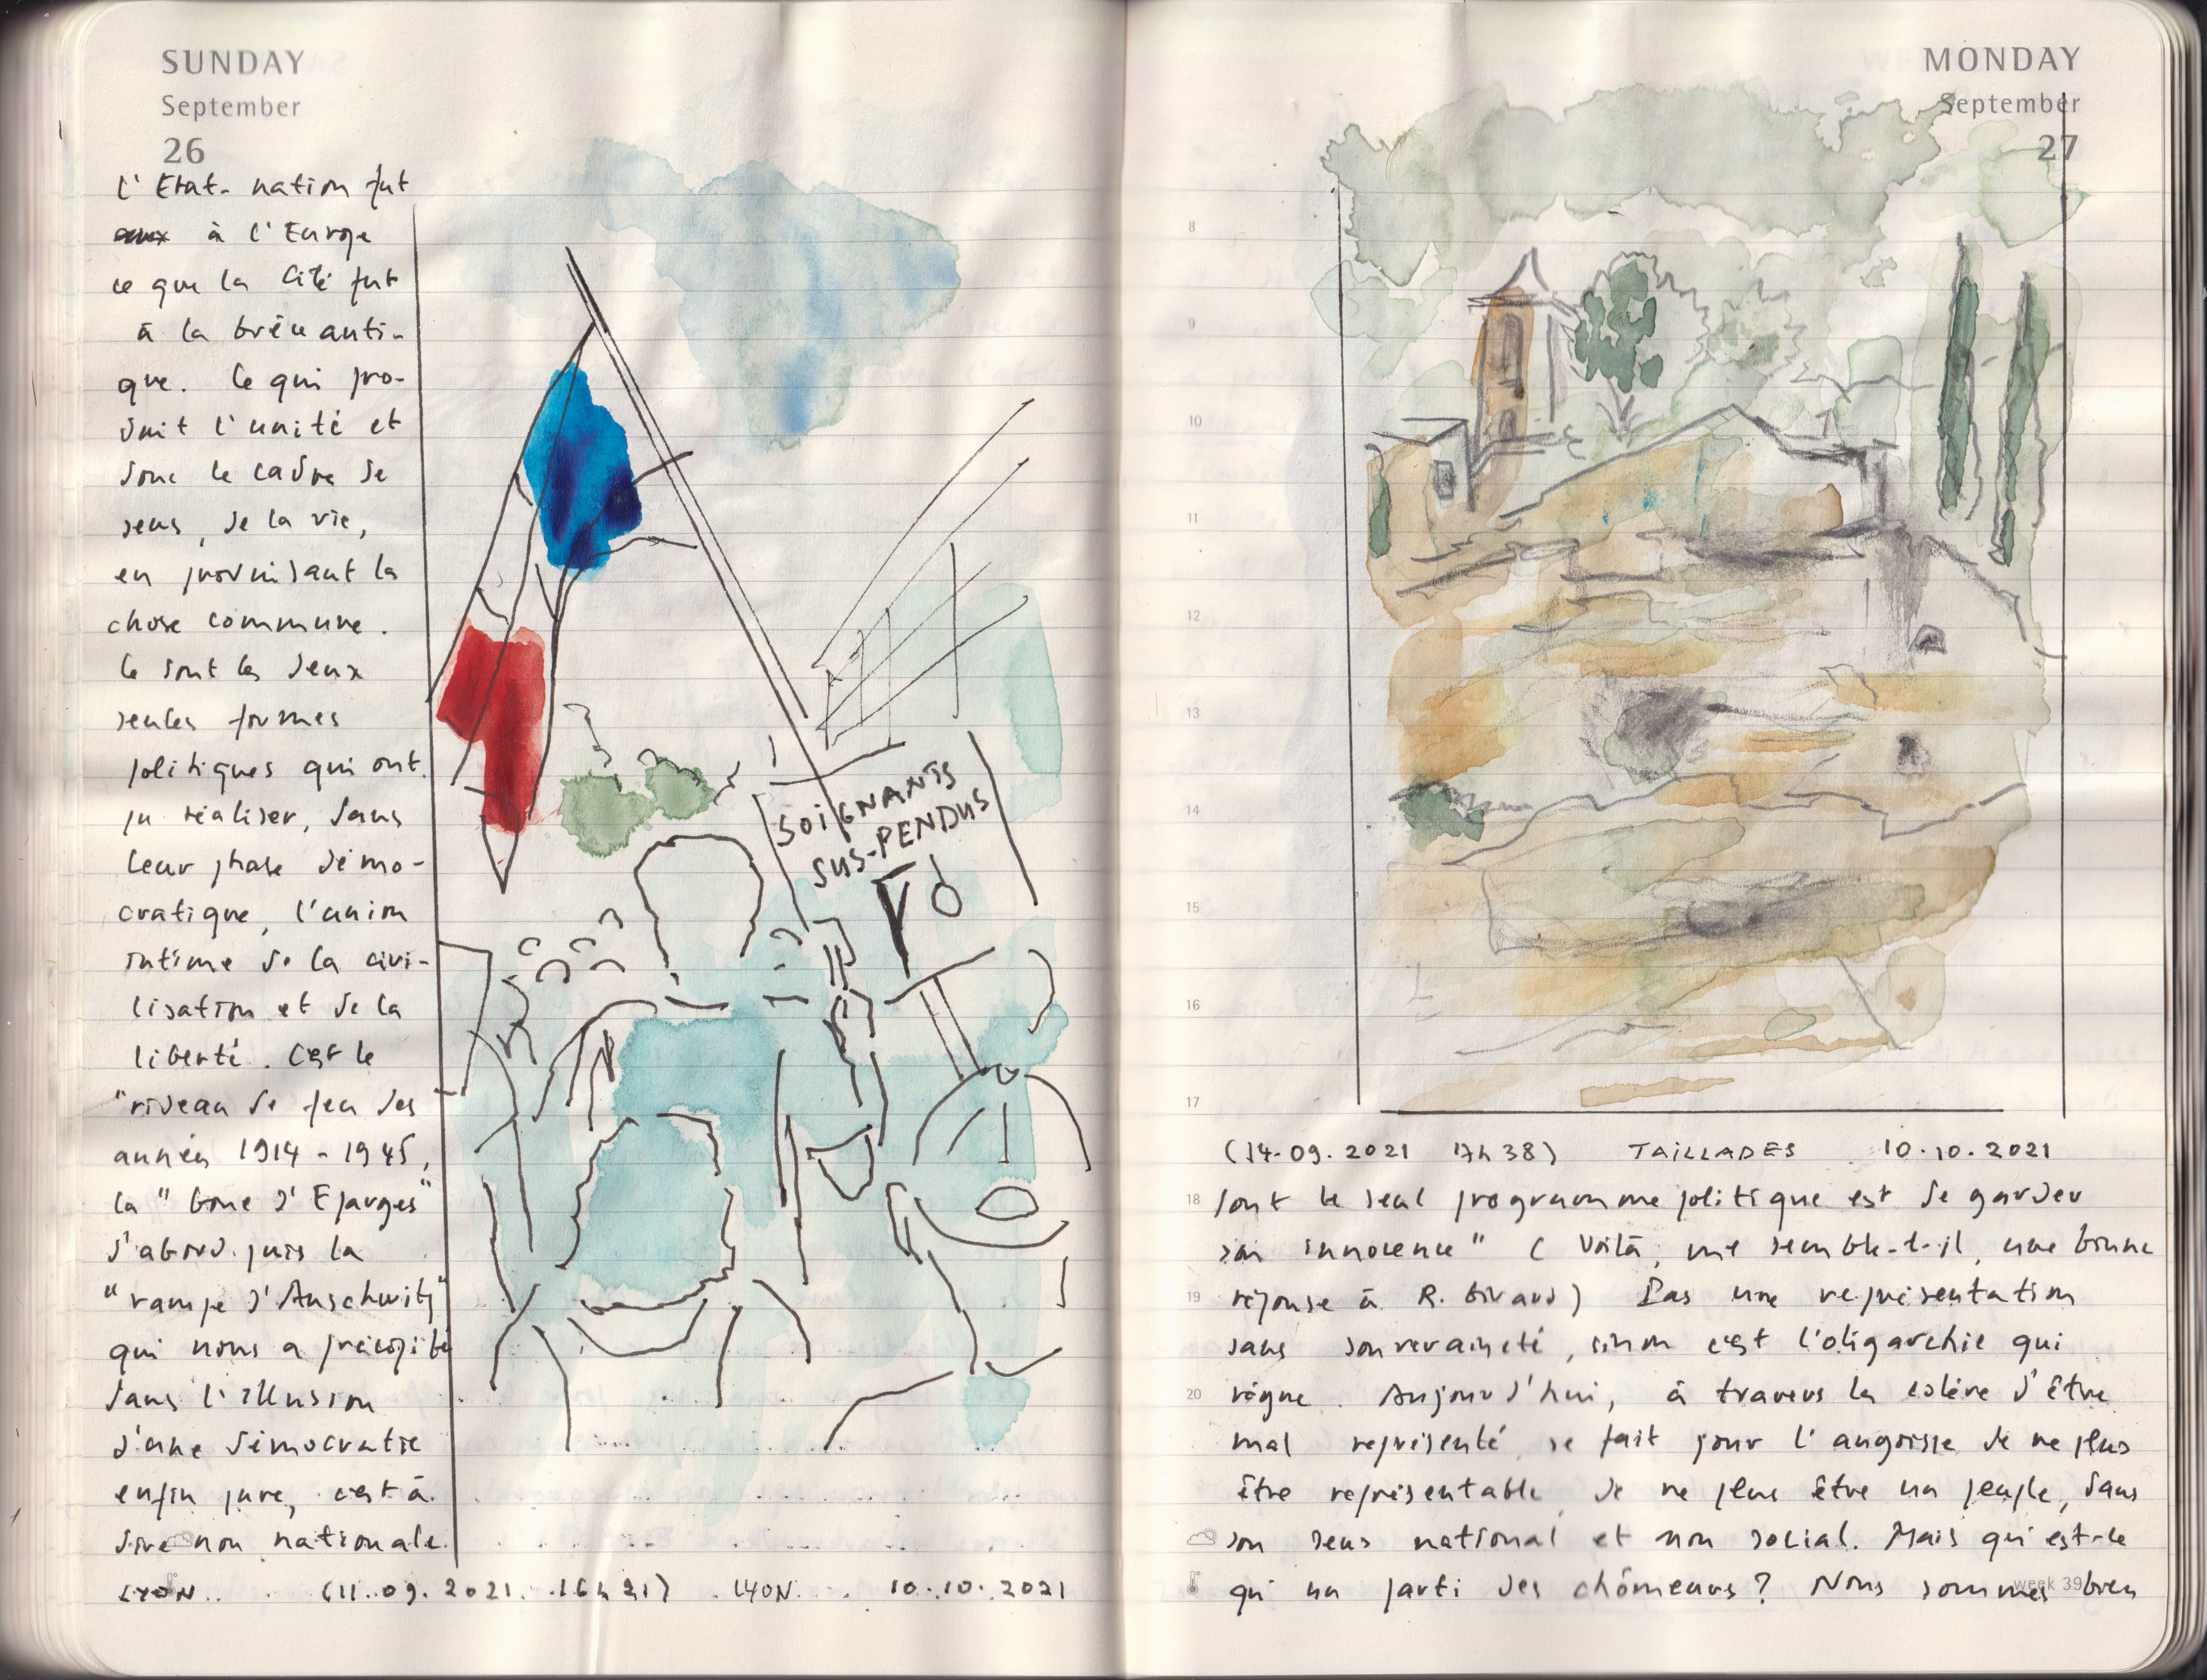 SUNDAY
September
26
L'Etat-nation fut
à l'Europe
ce que la Cité fut
à la Grèce anti-
que. Ce qui pro-
duit l'unité et
donc le cadre de
sens, de la vie,
en produisant la
chose commune.
Ce sont les deux
seules formes
politiques qui ont
pu réaliser, dans
leur phase démo-
cratique, l'union
intime de la civi-
lisation et de la
liberté. C'est le
"rideau de feu des
années 1914-1945,
la "boue d'Eparges"
d'abord puis la
"rampe d'Auschwitz"
qui nous a précipité
dans l'illusion
d'une démocratie
enfin pure, c'est à
dire non nationale.
LYON (11.09.2021 16h21) LYON 10.10.2021
SOIGNANTS
SUS-PENDUS
MONDAY
September
27
8
9
10
11
12
13
14
15
16
17
(14.09.2021 17h38) TAILLADES 10.10.2021
18 dont le seul programme politique est de garder
son innocence" (Voilà, me semble-t-il, une bonne
19 réponse à R. Girard) Pas une représentation
sans souveraineté, sinon c'est l'oligarchie qui
20 règne. Aujourd'hui, à travers la colère d'être
mal représenté se fait jour l'angoisse de ne plus
être représentable, de ne plus être un peuple, dans
son sens national et non social. Mais qu'est-ce
qu'un parti des chômeurs? Nous sommes bien
week 39